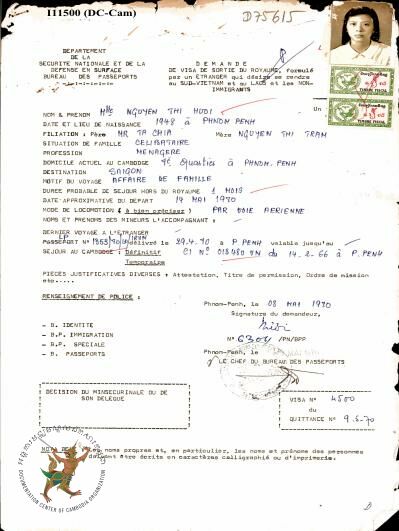 111500 (DC-Cam)
D75615
DEPARTEMENT
DE LA
SECURITE NATIONALE ET DE LA
DEFENSE EN SURFACE
BUREAU DES PASSEPORTS
DEMANDE
DE VISA DE SORTIE DU ROYAUME, formulée
par un ETRANGER qui désire se rendre
au SUD-VIETNAM et au LAOS et les NON-
IMMIGRANTS
NOM & PRENOM Mlle NGUYEN THI HUOI
DATE ET LIEU DE NAISSANCE 1948 à PHNOM.PENH
FILIATION : Père MR TA CHIA Mère NGUYEN THI TRAM
SITUATION DE FAMILLE CELIBATAIRE
PROFESSION MENAGERE
DOMICILE ACTUEL AU CAMBODGE Quartier à PHNOM.PENH
DESTINATION SAIGON
MOTIF DU VOYAGE AFFAIRE DE FAMILLE
DUREE PROBABLE DE SEJOUR HORS DU ROYAUME 1 MOIS
DATE APPROXIMATIVE DU DEPART 14 MAI 1970
MODE DE LOCOMOTION (à bien préciser) PAR VOIE AERIENNE
NOMS ET PRENOMS DES MINEURS L'ACCOMPAGNANT :
DERNIER VOYAGE A L'ETRANGER
PASSEPORT N° délivré le 29.4.70 à P PENH valable jusqu'au
SEJOUR AU CAMBODGE : Définitif CI N° 018480 VN du 14.2.66 à P.PENH
Temporaire
PIECES JUSTIFICATIVES DIVERSES : Attestation, Titre de permission, Ordre de mission
etc.....
RENSEIGNEMENT DE POLICE :
Phnom-Penh, le 08 MAI 1970
Signature du demandeur,
N° 6304 /PN/BPP
- B. IDENTITE
- B.P. IMMIGRATION
- B.P. SPECIALE
- B. PASSEPORTS
Phnom-Penh, le
LE CHEF DU BUREAU DES PASSEPORTS
DECISION DU MINSECURINALE OU DE
SON DELEGUE
VISA N° 4500
du
QUITTANCE N° 9.5.70
les noms propres et, en particulier, les noms et prénoms des personnes
doivent être écrits en caractères calligraphié ou d'imprimerie.
DOCUMENTATION CENTER OF CAMBODIA ORGANIZATION